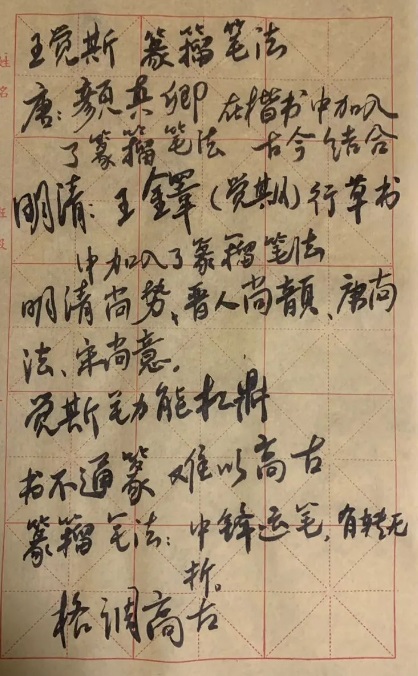 王觉斯 篆籀笔法
唐：颜真卿 在楷书中加入
了篆籀笔法 古今结合
明清：王鐸（觉斯）行草书
中加入了篆籀笔法
明清尚势、晋人尚韻、唐尚
法、宋尚意。
觉斯笔力能扛鼎
书不通篆 难以高古
篆籀笔法：中锋运笔，有转无
折。
格调高古
姓名
班级